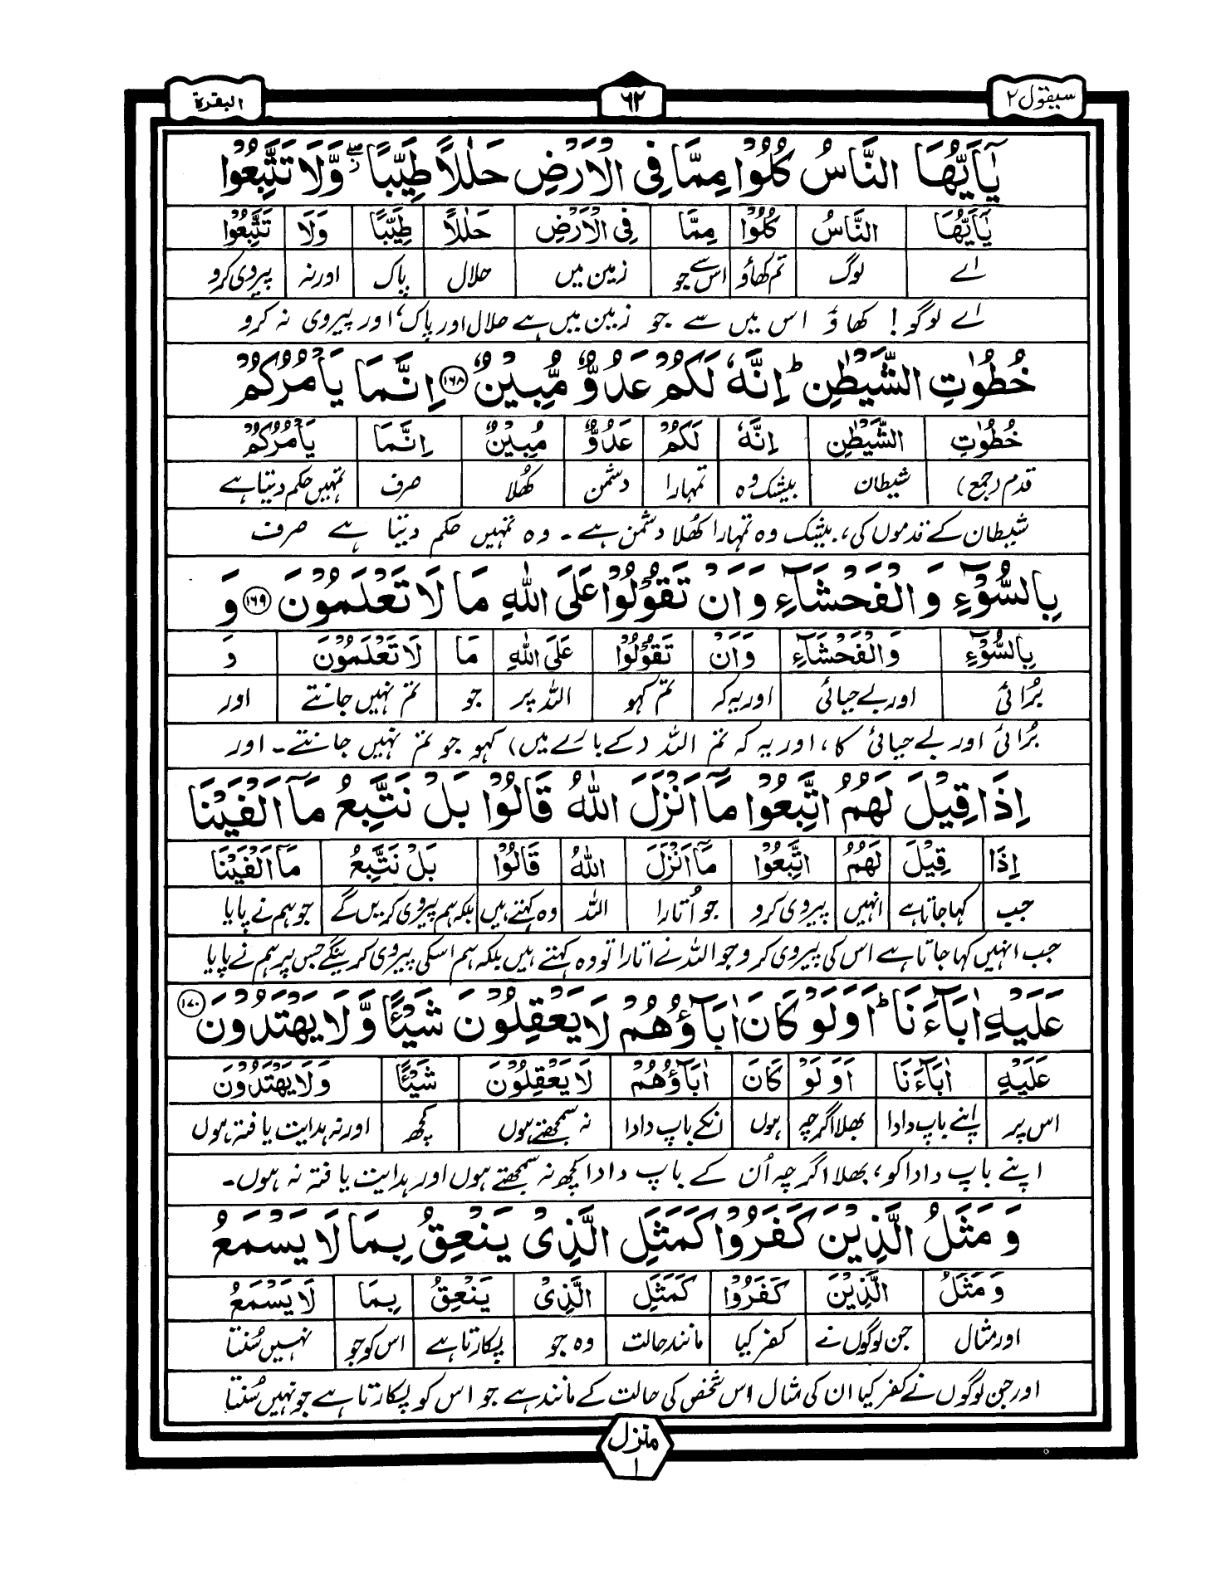 سیقول ۲
۶۲
البقرة
یٰۤاَیُّهَا النَّاسُ كُلُوْا مِمَّا فِی الْاَرْضِ حَلٰلًا طَیِّبًا ۖ٘ وَّلَا تَتَّبِعُوْا
یٰۤاَیُّهَا النَّاسُ كُلُوْا مِمَّا فِی الْاَرْضِ حَلٰلًا طَیِّبًا وَلَا تَتَّبِعُوْا
اے لوگ تم کھاؤ اس سے جو زمین میں حلال پاک اور نہ پیروی کرو
اے لوگو! کھاؤ اس میں سے جو زمین میں ہے حلال اور پاک، اور پیروی نہ کرو
خُطُوٰتِ الشَّیْطٰنِ ؕ اِنَّهٗ لَكُمْ عَدُوٌّ مُّبِیْنٌ ۱۶۸ اِنَّمَا یَاْمُرُكُمْ
خُطُوٰتِ الشَّیْطٰنِ اِنَّهٗ لَكُمْ عَدُوٌّ مُبِیْنٌ اِنَّمَا یَاْمُرُكُمْ
قدم (جمع) شیطان بیشک وہ تمہارا دشمن کھلا صرف تمہیں حکم دیتا ہے
شیطان کے قدموں کی، بیشک وہ تمہارا کھلا دشمن ہے۔ وہ تمہیں حکم دیتا ہے صرف
بِالسُّوْٓءِ وَالْفَحْشَآءِ وَاَنْ تَقُوْلُوْا عَلَی اللّٰهِ مَا لَا تَعْلَمُوْنَ ۱۶۹ وَ
بِالسُّوْٓءِ وَالْفَحْشَآءِ وَاَنْ تَقُوْلُوْا عَلَی اللّٰهِ مَا لَا تَعْلَمُوْنَ وَ
بُرائی اور بے حیائی اور یہ کہ تم کہو اللہ پر جو تم نہیں جانتے اور
بُرائی اور بے حیائی کا، اور یہ کہ تم اللہ (کے بارے میں) کہو جو تم نہیں جانتے۔ اور
اِذَا قِیْلَ لَهُمُ اتَّبِعُوْا مَاۤ اَنْزَلَ اللّٰهُ قَالُوْا بَلْ نَتَّبِعُ مَاۤ اَلْفَیْنَا
اِذَا قِیْلَ لَهُمُ اتَّبِعُوْا مَاۤ اَنْزَلَ اللّٰهُ قَالُوْا بَلْ نَتَّبِعُ مَاۤ اَلْفَیْنَا
جب کہا جاتا ہے انہیں پیروی کرو جو اُتارا اللہ وہ کہتے ہیں بلکہ ہم پیروی کریں گے جو ہم نے پایا
جب انہیں کہا جاتا ہے اس کی پیروی کرو جو اللہ نے اتارا تو وہ کہتے ہیں بلکہ ہم اسکی پیروی کرینگے جس پر ہم نے پایا
عَلَیْهِ اٰبَآءَنَا ؕ اَوَلَوْ كَانَ اٰبَآؤُهُمْ لَا یَعْقِلُوْنَ شَیْـًٔا وَّلَا یَهْتَدُوْنَ ۱۷۰
عَلَیْهِ اٰبَآءَنَا اَوَلَوْ كَانَ اٰبَآؤُهُمْ لَا یَعْقِلُوْنَ شَیْـًٔا وَلَا یَهْتَدُوْنَ
اس پر اپنے باپ دادا بھلا اگرچہ ہوں انکے باپ دادا نہ سمجھتے ہوں کچھ اور نہ ہدایت یافتہ ہوں
اپنے باپ دادا کو، بھلا اگرچہ اُن کے باپ دادا کچھ نہ سمجھتے ہوں اور ہدایت یافتہ نہ ہوں۔
وَمَثَلُ الَّذِیْنَ كَفَرُوْا كَمَثَلِ الَّذِیْ یَنْعِقُ بِمَا لَا یَسْمَعُ
وَمَثَلُ الَّذِیْنَ كَفَرُوْا كَمَثَلِ الَّذِیْ یَنْعِقُ بِمَا لَا یَسْمَعُ
اور مثال جن لوگوں نے کفر کیا مانند حالت وہ جو پکارتا ہے اس کو جو نہیں سُنتا
اور جن لوگوں نے کفر کیا ان کی مثال اس شخص کی حالت کے مانند ہے جو اس کو پکارتا ہے جو نہیں سُنتا
منزل ۱